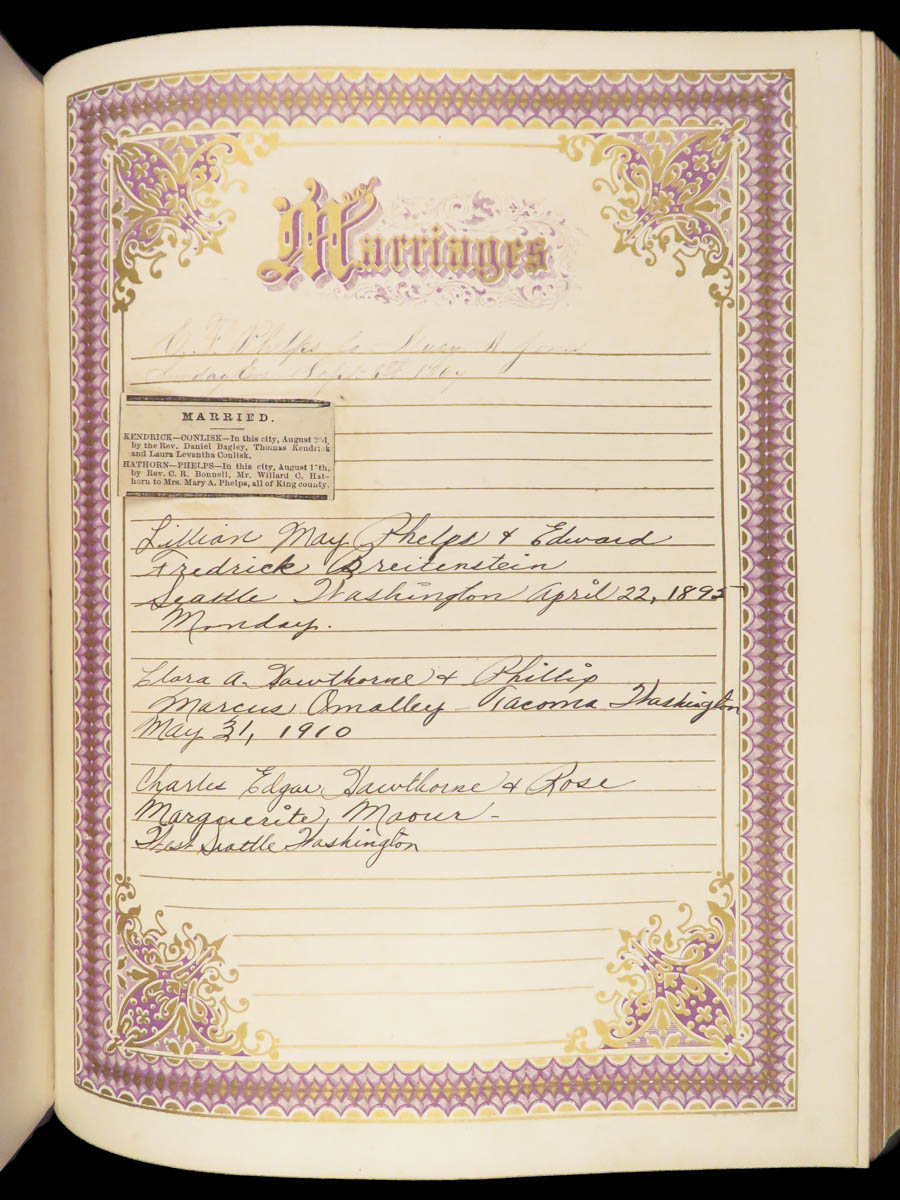 Marriages
C. F. Phelps to Mary A
Sunday Sept
MARRIED.
KENDRICK—CONLISK—In this city, August
by the Rev. Daniel Bagley, Thomas Kendrick
and Laura Levantha Conlisk.
HATHORN—PHELPS—In this city, August
by Rev. C. R. Bonnell, Mr. Willard C. Hat-
horn to Mrs. Mary A. Phelps, all of King county.
Lillian May Phelps & Edward
Fredrick Breitenstein
Seattle Washington April 22, 1895
Monday.
Clara A. Hawthorne & Phillip
Marcus Omalley - Tacoma Washington
May 31, 1910
Charles Edgar Hawthorne & Rose
Marguerite, Maour -
West Seattle Washington